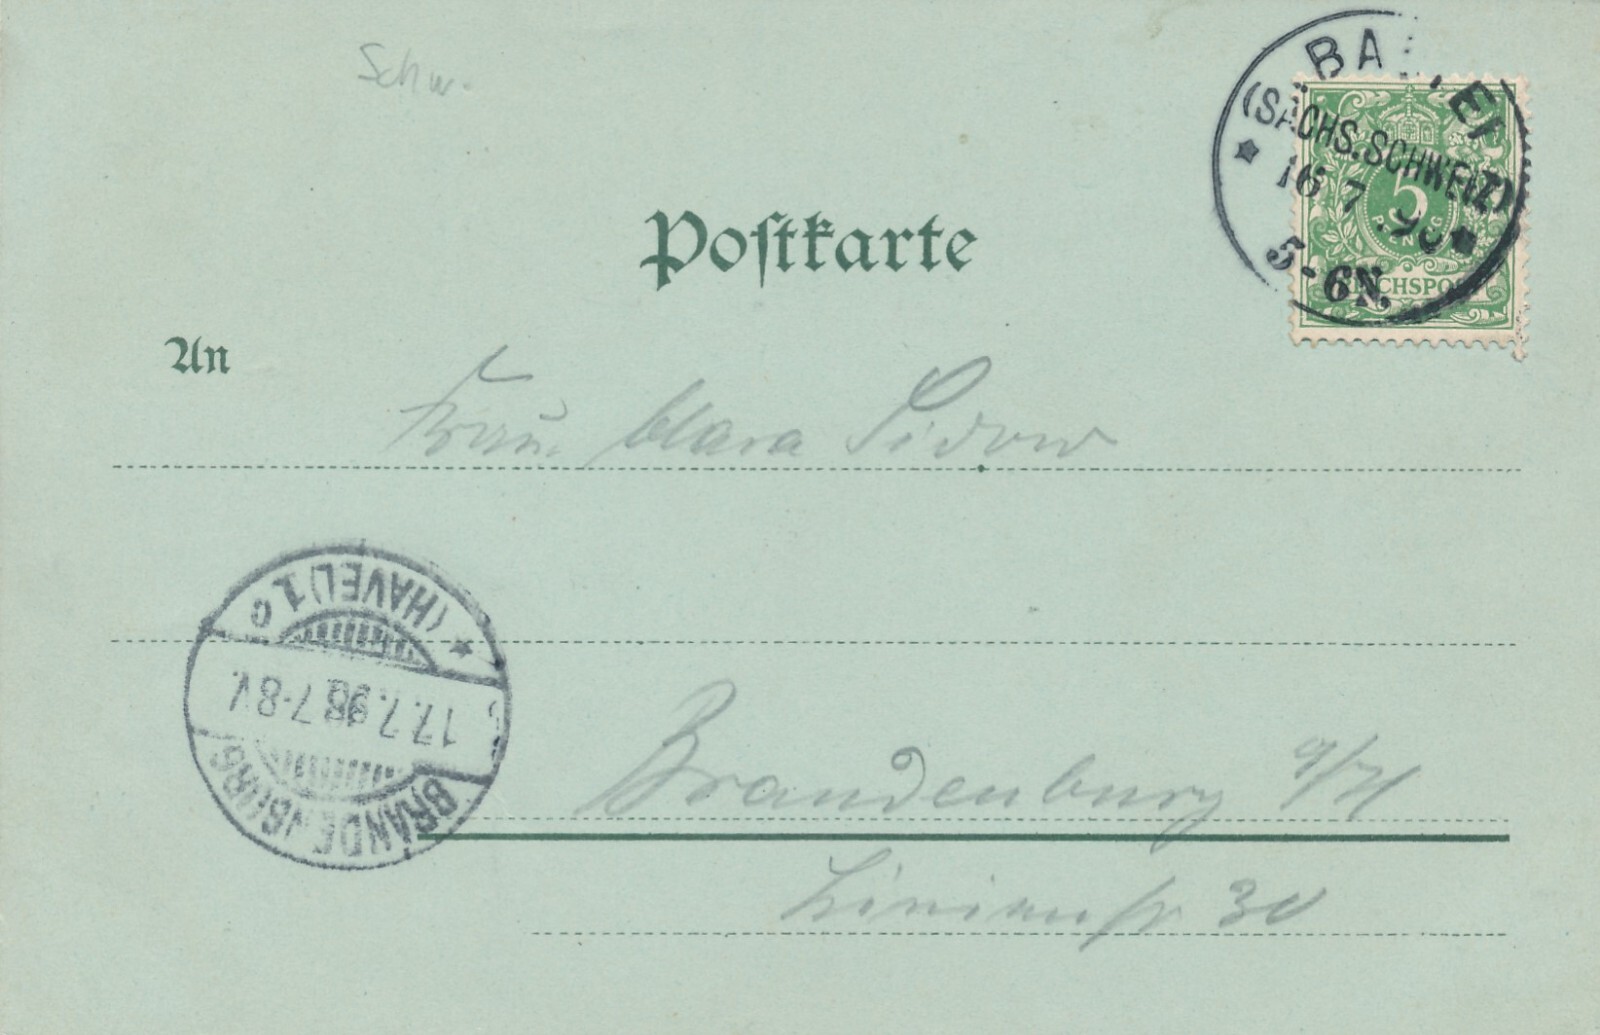 Schw.
BASTEI
(SÄCHS.SCHWEIZ)
16 7 98
5-6N.
5
PFENNIG
REICHSPOST
Postkarte
An
Frau Clara Sidow
(HAVEL) 1 c
17.7.98 7-8V.
BRANDENBURG
Brandenburg a/H
Linienstr 30